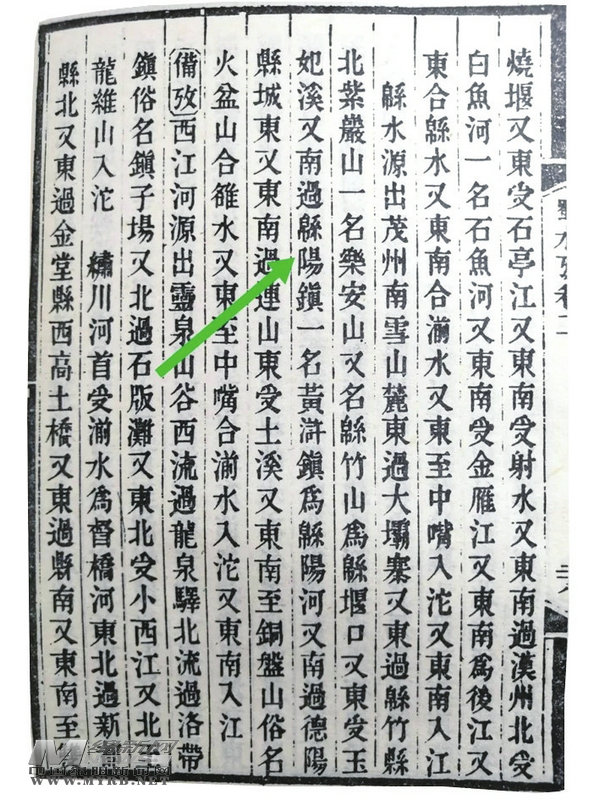 蜀水攷卷二
燒堰又東受石亭江又東南受射水又東南過漢州北受
白魚河一名石魚河又東南受金雁江又東南爲後江又
東合緜水又東南合湔水又東至中嘴入沱又東南入江
緜水源出茂州南雪山麓東過大壩寨又東過緜竹縣
北紫巖山一名樂安山又名緜竹山爲緜堰口又東受玉
妃溪又南過緜陽鎮一名黃滸鎮爲緜陽河又南過德陽
縣城東又東南過連山東受土溪又東南至銅盤山俗名
火盆山合雒水又東至中嘴合湔水入沱又東南入江
備攷西江河源出靈泉山谷西流過龍泉驛北流過洛帶
鎮俗名鎮子場又北過石版灘又東北受小西江又北
龍雒山入沱 繡川河首受湔水爲督橋河東北過新
縣北又東過金堂縣西高土橋又東過縣南又東南至
WWW.MYRB.NET